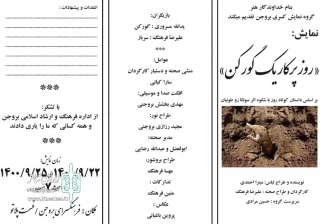 بنام خداوندگار هنر
گروه نمایش کسری بروجن تقدیم میکند
نمایش:
«روز پرکار یک گورکن»
بر اساس داستان کوتاه روز با شکوه اثر سوتانا رو
نویسنده و طراح لباس: میترا احمدی
طراح و کارگردان صحنه: علیرضا فرهنگ
سرپرست گروه: حسین مرادی
بازیگران:
یدالله مسروری: گورکن
علیرضا فرهنگ: سرباز
عوامل:
منشی صحنه و دستیار کارگردان
سارا کیانی
افکت صدا و موسیقی:
مهدی بخشش بروجنی
طراح نور:
مجید رزازی بروجنی
مدیر صحنه:
ابوالفضل و عبدالله رضایی
طراح بروشور:
مهسا فرهنگ
تدارکات:
متین فرهنگ
عکاس:
پروین باغبانی
انتقادات و پیشنهادات:
با تشکر:
از اداره فرهنگ و ارشاد اسلامی بروجن
و همه کسانی که ما را یاری دادند
زمان نمایش:
۱۴۰۰/۹/۲۲
۱۴۰۰/۹/۲۵
مکان: فرهنگسرای بروجن / پلاتو